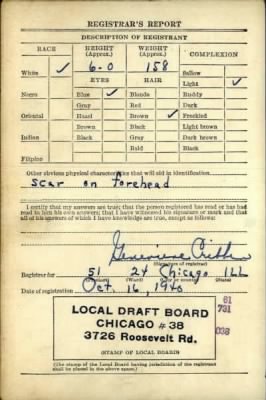 REGISTRAR'S REPORT
DESCRIPTION OF REGISTRANT
RACE HEIGHT (Approx.) WEIGHT (Approx.) COMPLEXION
White ✓ 6-0 158 Sallow
EYES HAIR Light ✓
Negro Blue ✓ Blonde Ruddy
Gray Red Dark
Oriental Hazel Brown ✓ Freckled
Brown Black Light brown
Indian Black Gray Dark brown
Bald Black
Filipino
Other obvious physical characteristics that will aid in identification
Scar on forehead
I certify that my answers are true; that the person registered has read or has had read to him his own answers; that I have witnessed his signature or mark and that all of his answers of which I have knowledge are true, except as follows:
Genevieve
(Signature of registrar)
Registrar for 51 24 Chicago ILL
(Ward) (City or county) (State)
Date of registration Oct. 16, 1940
61
731
038
LOCAL DRAFT BOARD
CHICAGO # 38
3726 Roosevelt Rd.
(STAMP OF LOCAL BOARD)
(The stamp of the Local Board having jurisdiction of the registrant shall be placed in the above space.)